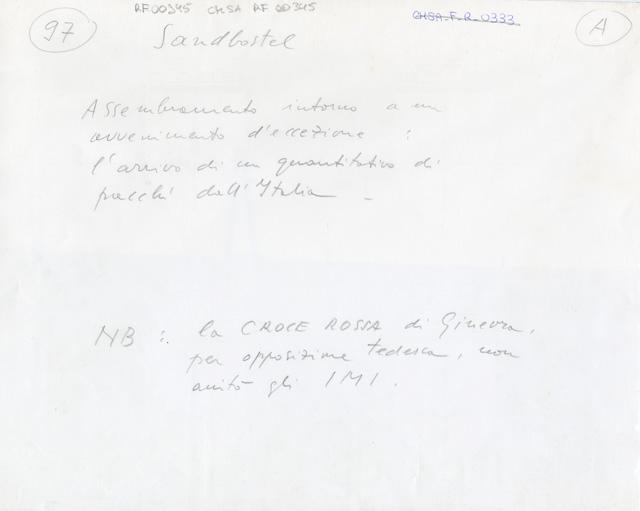 97
RF00345 CHSA RF 00345
CHSA-F.R-0333
A
Sandbostel
Assembramento intorno a un
avvenimento d'eccezione :
l'arrivo di un quantitativo di
pacchi dall'Italia -
NB : la CROCE ROSSA di Ginevra,
per opposizione tedesca, non
aiutò gli IMI.